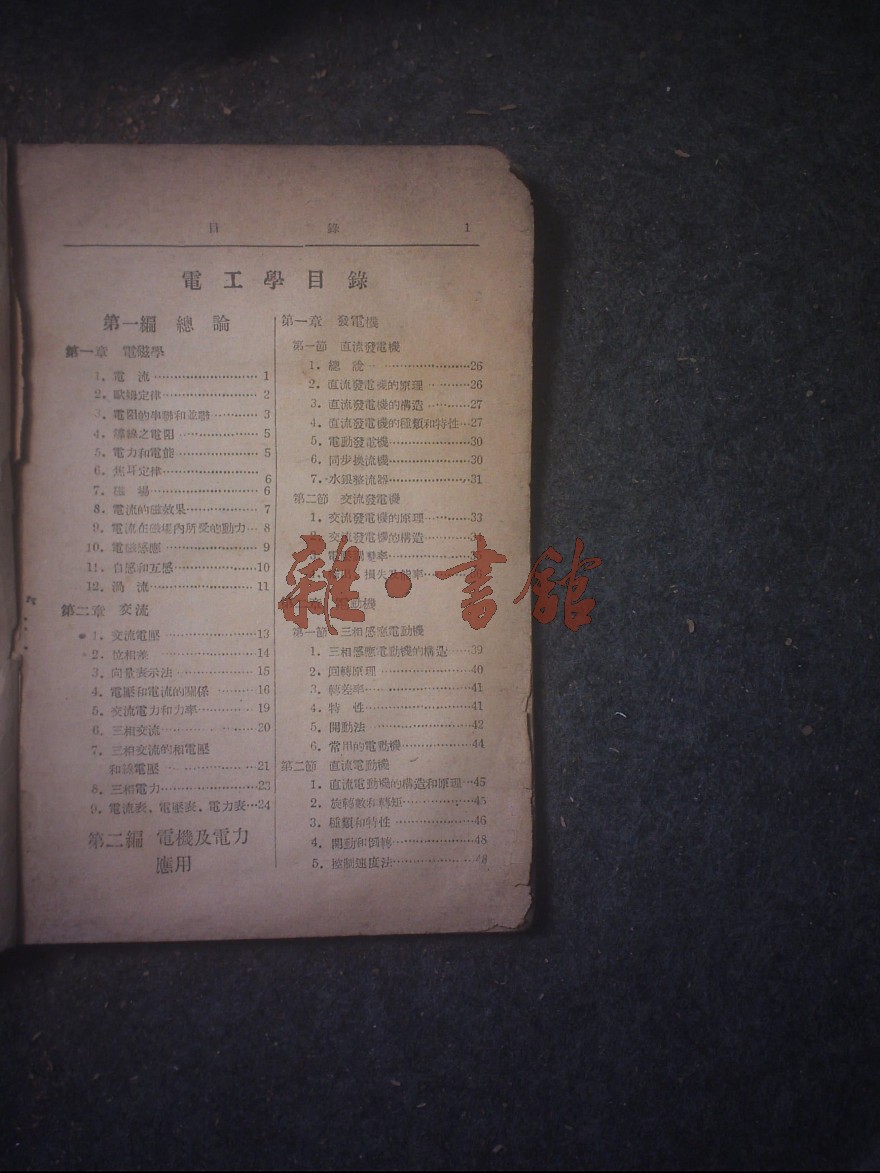 目 錄 1
電工學目錄
第一編 總論
第一章 電磁學
1. 電流 1
2. 歐姆定律 2
3. 電阻的串聯和並聯 3
4. 導線之電阻 5
5. 電力和電能 5
6. 焦耳定律 6
7. 磁場 6
8. 電流的磁效果 7
9. 電流在磁場內所受的動力 8
10. 電磁感應 9
11. 自感和互感 10
12. 渦流 11
第二章 交流
1. 交流電壓 13
2. 位相差 14
3. 向量表示法 15
4. 電壓和電流的關係 16
5. 交流電力和力率 19
6. 三相交流 20
7. 三相交流的相電壓
和線電壓 21
8. 三相電力 23
9. 電流表、電壓表、電力表 24
第二編 電機及電力
應用
第一章 發電機
第一節 直流發電機
1. 總說 26
2. 直流發電機的原理 26
3. 直流發電機的構造 27
4. 直流發電機的種類和特性 27
5. 電動發電機 30
6. 同步換流機 30
7. 水銀整流器 31
第二節 交流發電機
1. 交流發電機的原理 33
交流發電機的構造
損失及效率
動機
第一節 三相感應電動機
1. 三相感應電動機的構造 39
2. 回轉原理 40
3. 轉差率 41
4. 特性 41
5. 開動法 42
6. 常用的電動機 44
第二節 直流電動機
1. 直流電動機的構造和原理 45
2. 旋轉數和轉矩 45
3. 種類和特性 46
4. 開動和回轉 48
5. 控制速度法 48
雜·書館